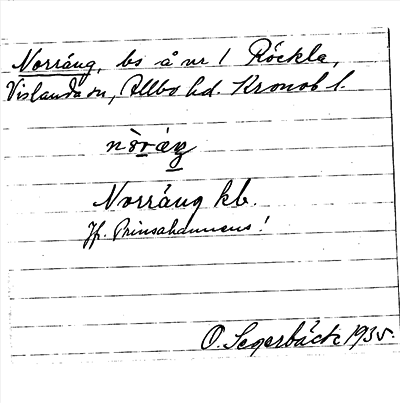 Norräng, bs å nr 1 Röckla,
Vislanda sn, Allbo hd. Kronob l.
Norräng kb.
Jfr. Prinsahamnens!
O. Segerbäck 1935.